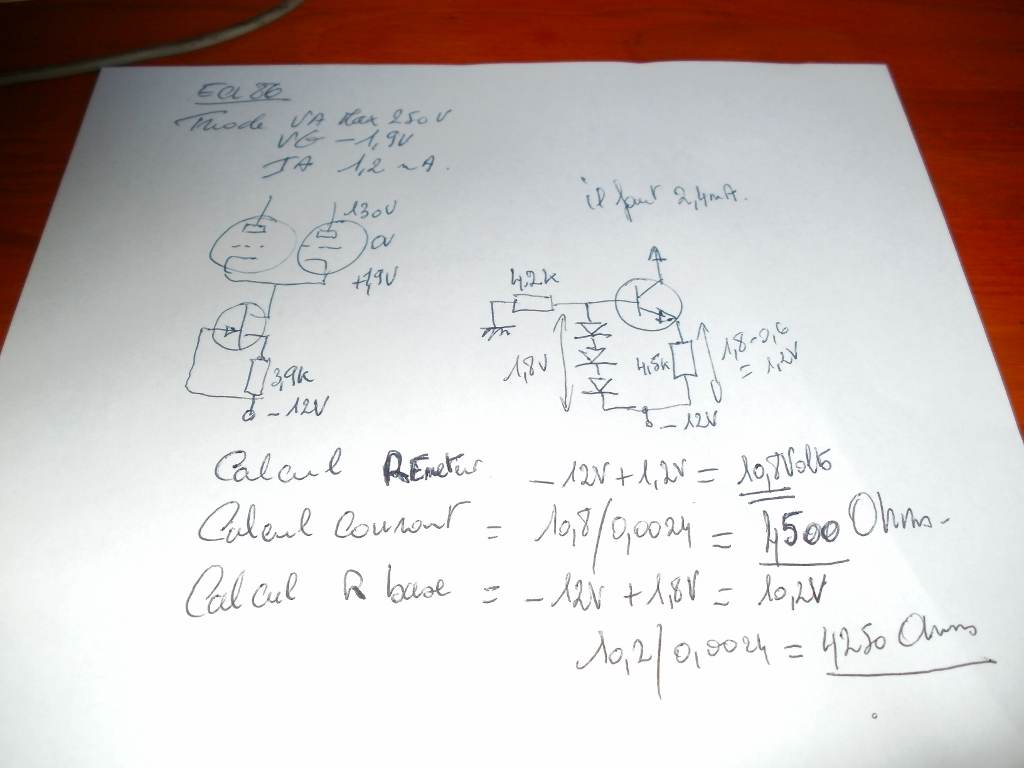 ECL 86
Triode VA Max 250V
VG -1,9V
IA 1,2 mA.
il faut 2,4mA.
130V
0V
+1,9V
3,9k
-12V
4,2k
1,8V
4,5k
1,8-0,6
= 1,2V
-12V
Calcul REmeteur -12V+1,2V = 10,8Volts
Calcul courant = 10,8/0,0024 = 4500 Ohms.
Calcul R base = -12V +1,8V = 10,2V
10,2/0,0024 = 4250 Ohms